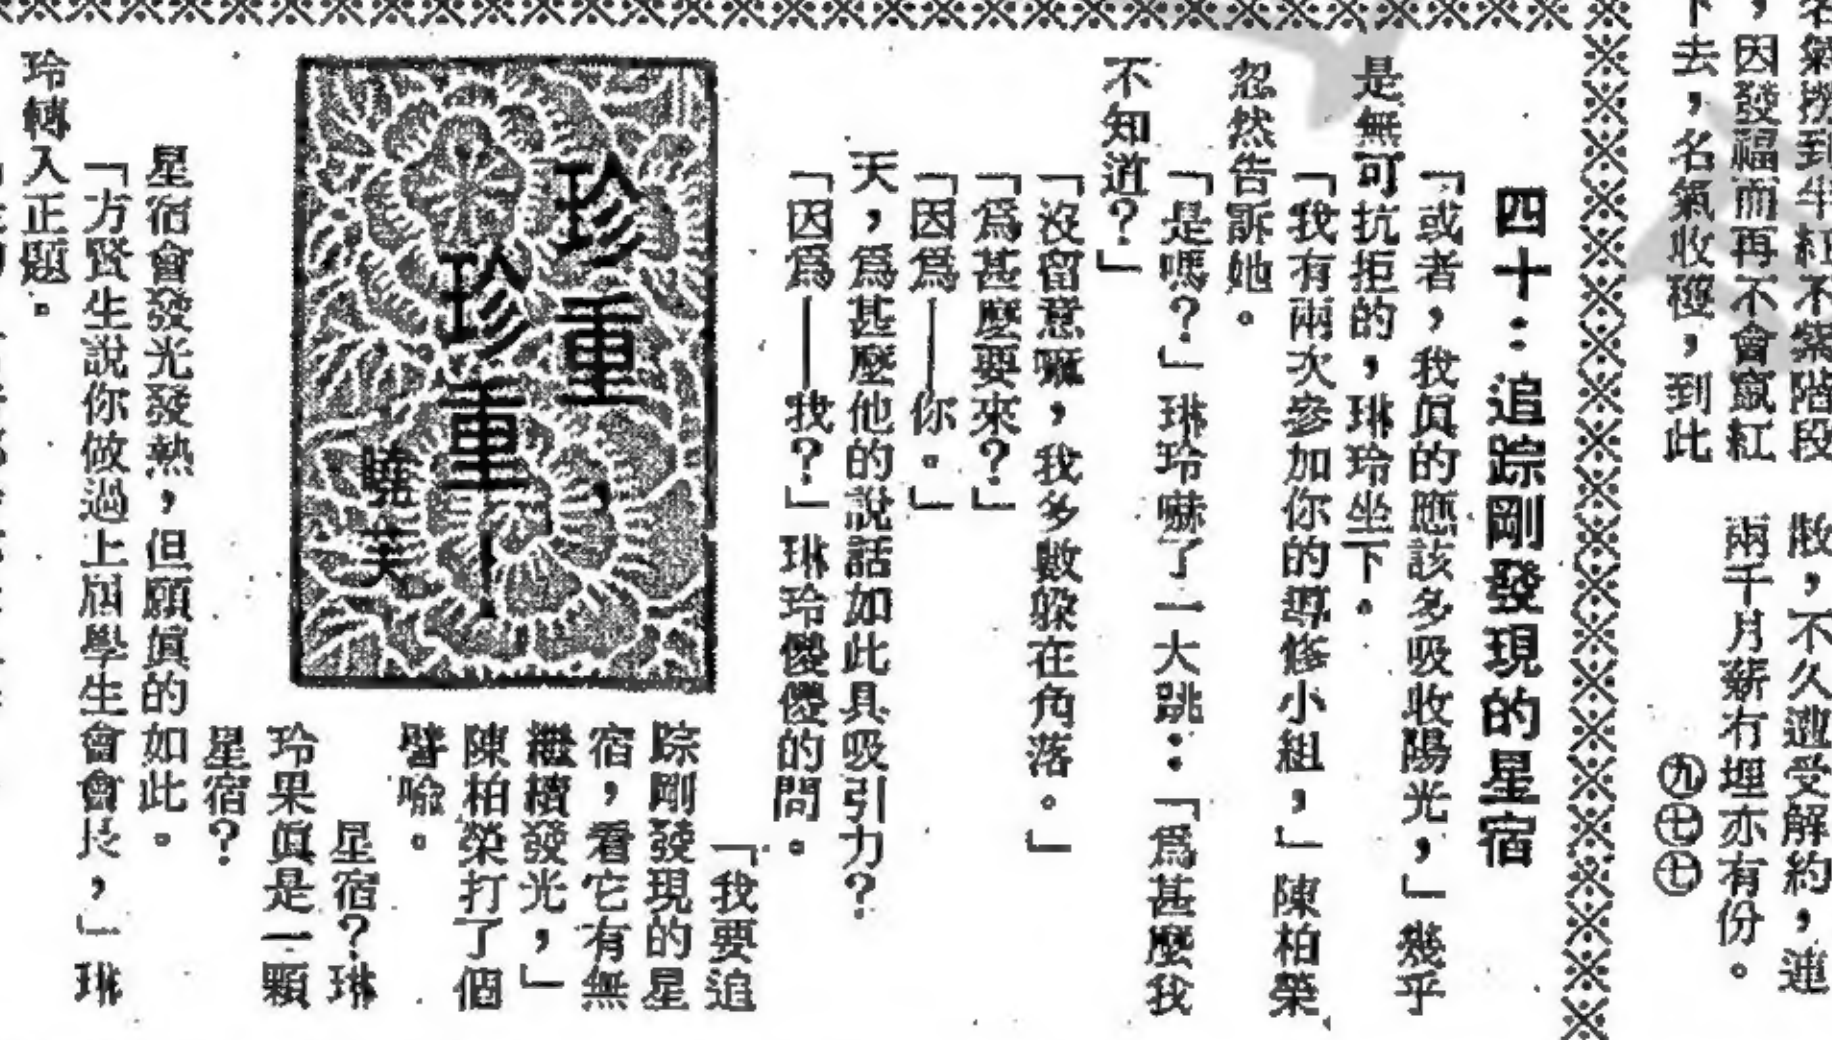 ，因發福而再不會竄紅
下去，名氣收穫，到此
，不久遭受解約，連
兩千月薪冇埋亦有份。
㊈㊆㊆
四十：追踪剛發現的星宿
「或者，我眞的應該多吸收陽光，」幾乎
是無可抗拒的，琳玲坐下。
「我有兩次參加你的導修小組，」陳柏榮
忽然告訴她。
「是嗎？」琳玲嚇了一大跳：「爲甚麼我
不知道？」
「沒留意嘛，我多數躲在角落。」
「爲甚麼要來？」
「因爲——你。」
天，爲甚麼他的說話如此具吸引力？
「因爲——我？」琳玲傻傻的問。
珍重，
珍重—
曉芙
「我要追
踪剛發現的星
宿，看它有無
繼續發光，」
陳柏榮打了個
譬喻。
星宿？琳
玲果眞是一顆
星宿？
星宿會發光發熱，但願眞的如此。
「方賢生說你做過上屆學生會會長，」琳
玲轉入正題。